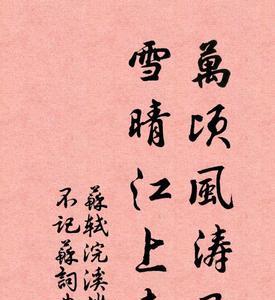 萬頃風涛
雪晴江上
蘇軾浣溪
不記蘇詞